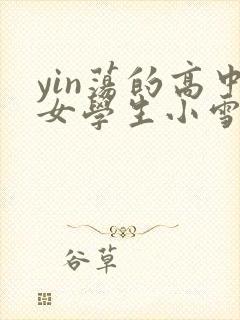 yin蕩的高中
女學生小雪
谷草